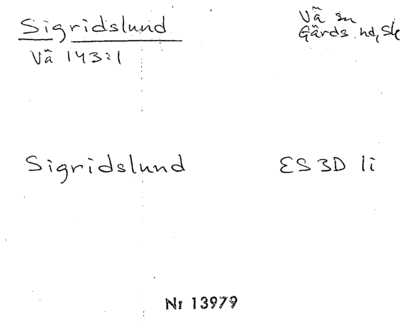 Sigridslund
Vä 143:1
Vä sn
Gärds hd, Sk
Sigridslund
ES 3D 1i
Nr 13979